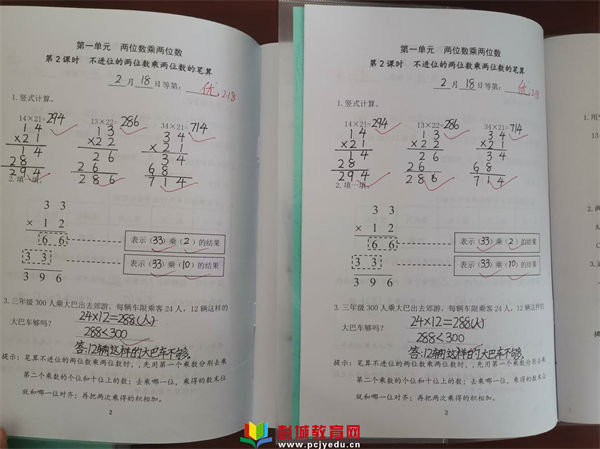 第一单元 两位数乘两位数
第2课时 不进位的两位数乘两位数的笔算
2月18日等第：优 2.18
1. 竖式计算。
14×21=294 13×22=286 34×21=714
1 4 1 3 3 4
×2 1 ×2 2 ×2 1
1 4 2 6 3 4
2 8 2 6 6 8
2 9 4 2 8 6 7 1 4
2. 填一填。
3 3
× 1 2
6 6 表示（33）乘（2）的结果
3 3 表示（33）乘（10）的结果
3 9 6
3. 三年级 300 人乘大巴出去郊游，每辆车限乘客 24 人，12 辆这样的
大巴车够吗？ 24×12=288(人)
288<300
答:12辆这样的大巴车不够。
提示：笔算不进位的两位数乘两位数时，先用第一个乘数分别去乘
第二个乘数的个位和十位上的数；去乘哪一位，乘得的数末位
就和哪一位对齐；再把两次乘得的积相加。
2
第一单元 两位数乘两位数
第2课时 不进位的两位数乘两位数的笔算
2月18日等第：优 2.18
1. 竖式计算。
14×21=294 13×22=286 34×21=714
1 4 1 3 3 4
×2 1 ×2 2 ×2 1
1 4 2 6 3 4
2 8 2 6 6 8
2 9 4 2 8 6 7 1 4
2. 填一填。
3 3
× 1 2
6 6 表示（33）乘（2）的结果
3 3 表示（33）乘（10）的结果
3 9 6
3. 三年级 300 人乘大巴出去郊游，每辆车限乘客 24 人，12 辆这样的
大巴车够吗？ 24×12=288(人)
288<300
答:12辆这样的大巴车不够。
提示：笔算不进位的两位数乘两位数时，先用第一个乘数分别去乘
第二个乘数的个位和十位上的数；去乘哪一位，乘得的数末位
就和哪一位对齐；再把两次乘得的积相加。
2
教育网
www.pcjyedu.cn